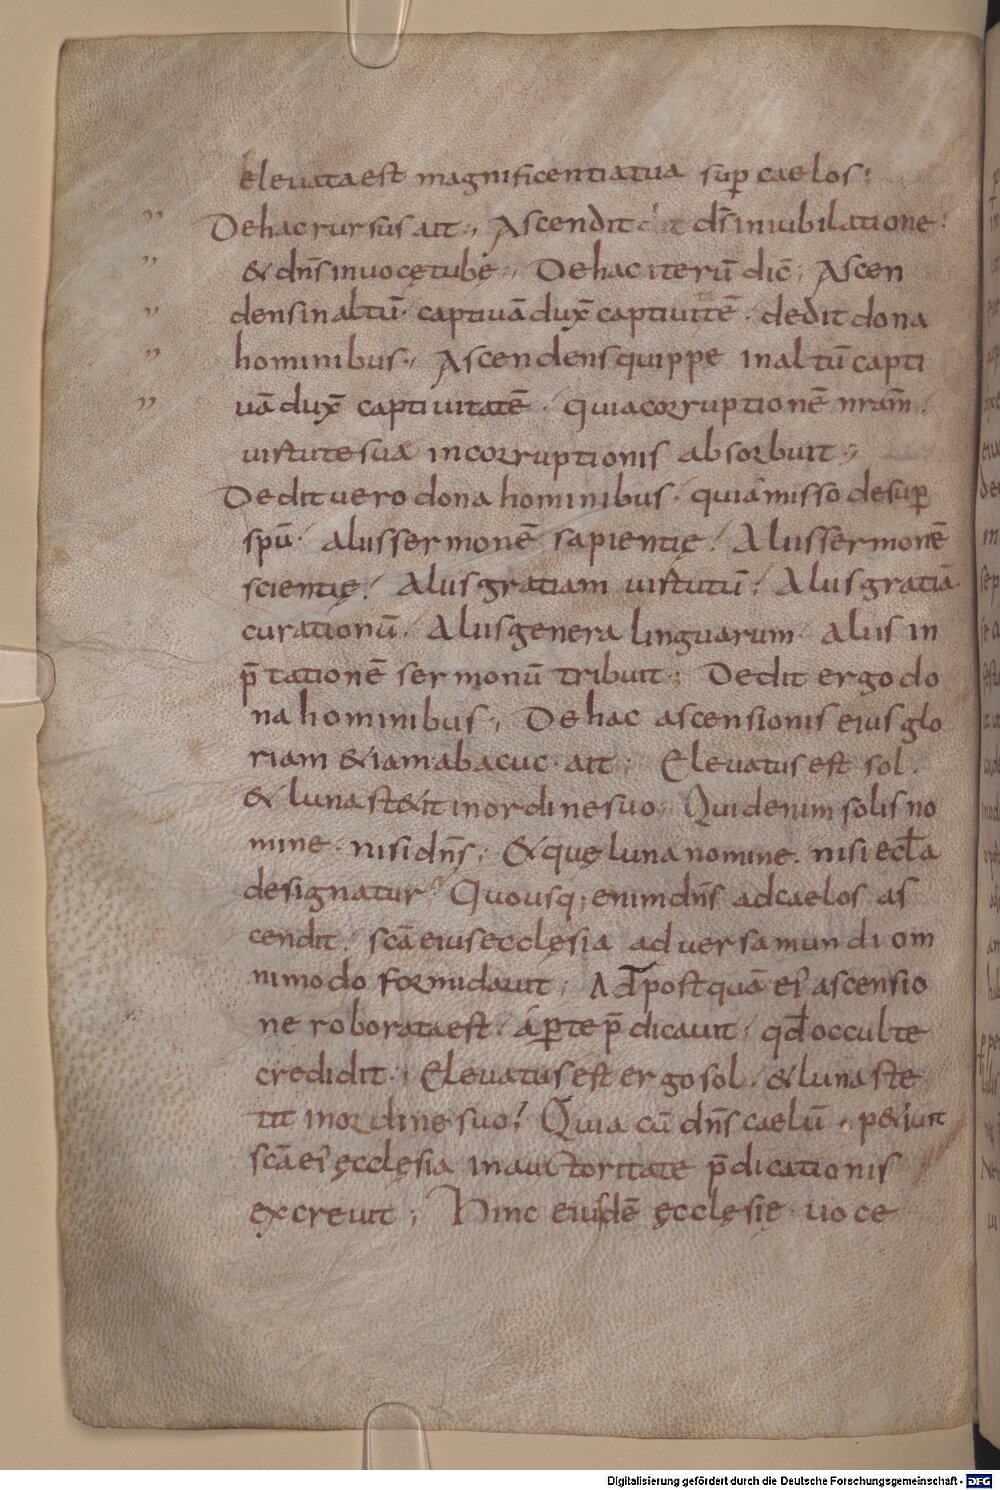 eleuata est magnificentia tua sup̄ caelos;
De hac rursus ait; Ascendit d̄s in iubilatione
& dn̄s in uocę tubę; De hac iterū dic̄; Ascen
dens in altū· captiuā dux̄ captiuitē· dedit dona
hominibus; Ascendens quippe in altū capti
uā dux̄ captiuitatē· quia corruptionē nr̄am
uirtute suæ incorruptionis absorbuit;
Dedit uero dona hominibus· quia misso desup̄
sp̄u· aliis sermonē sapientię· Aliis sermonē
scientię· Aliis gratiam uirtutū; Aliis gratiā
curationū· Aliis genera linguarum· aliis in
p̄tationē sermonū tribuit; Dedit ergo do
na hominibus; De hac ascensionis eius glo
riam & iam abacuc· ait; Eleuatus est sol·
& luna st&it in ordine suo· Qui d enim solis no
mine· nisi dn̄s; & quę luna nomine· nisi eccl̄a
designatur? Quousq; enim dn̄s ad caelos as
cendit· sc̄a eius ecclęsia aduersa mundi om
nimodo formidauit; At postquā ei' ascensio
ne roborata est· ap̄te p̄dicauit· qd̄ occulte
credidit; Eleuatus est ergo sol· & luna ste
tit in ordine suo; Quia cū dn̄s caelū· p&iuit
sc̄a ei' ęcclęsia in auctoritate p̄dicationis
excreuit; Hinc eiusdē ęcclęsię uoce
Digitalisierung gefördert durch die Deutsche Forschungsgemeinschaft - DFG